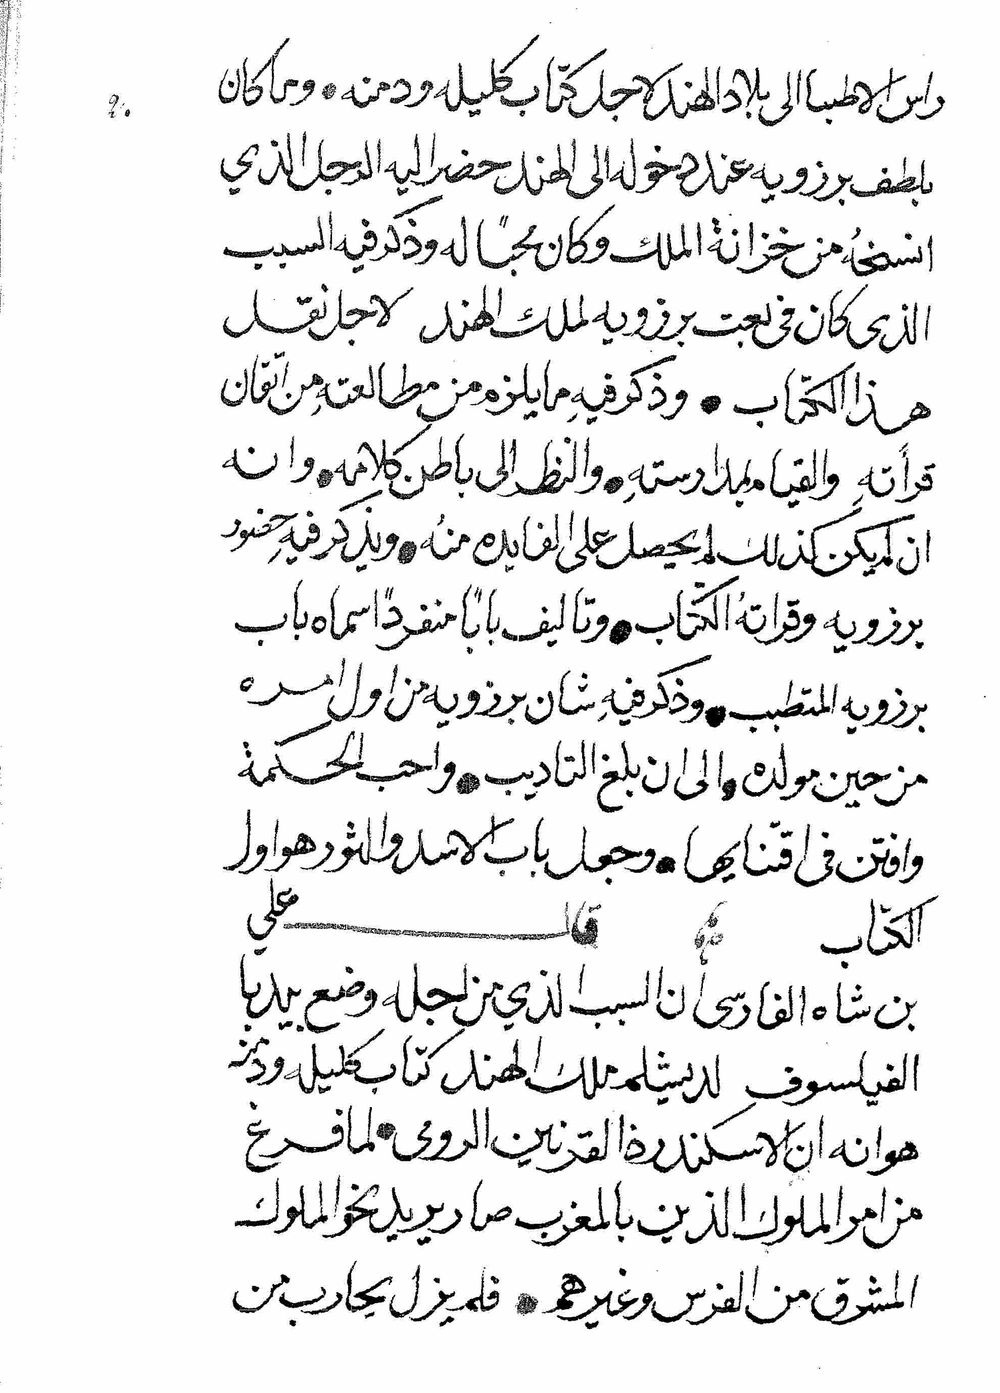 راس الاطبا الى بلاد الهند لاجل كتاب كليله ودمنه • وما كان
بلطف برزويه عند دخوله الى الهند حضر اليه الرجل الذي
انسخهُ من خزانة الملك وكان محبًا له وذكر فيه السبب
الذى كان فى بعث برزويه لملك الهند لاجل نقل
هذا الكتاب • وذكر فيهِ ما يلزم من مطالعتهِ من اتقان
قرأتهِ والقيام بمدارستهِ • والنظر الى باطن كلامه • وانه
ان لم يكن كذلك لم يحصل على الفايده منهُ • ويذكر فيهِ حضور
برزويه وقراتهُ الكتاب • وتاليف بابًا منفردًا اسماه باب
برزويه المتطبب • وذكر فيهِ شان برزويه من اول امره
من حين مولده • الى ان بلغ التاديب • واحب الحكمة
وافتن فى اقتنايها • وجعل باب الاسد والثور هو اول
الكتاب قال علي
بن شاه الفارسى ان السبب الذي من اجله وضع بيدبا
الفيلسوف لدبشلم ملك الهند كتاب كليله ودمنه
هو انه ان الاسكندر ذا القرنين الرومى • لما فرغ
من امر الملوك الذين بالمغرب صار يريد نحو الملوك
المشرق من الفرس وغيرهم • فلم يزل يحارب من